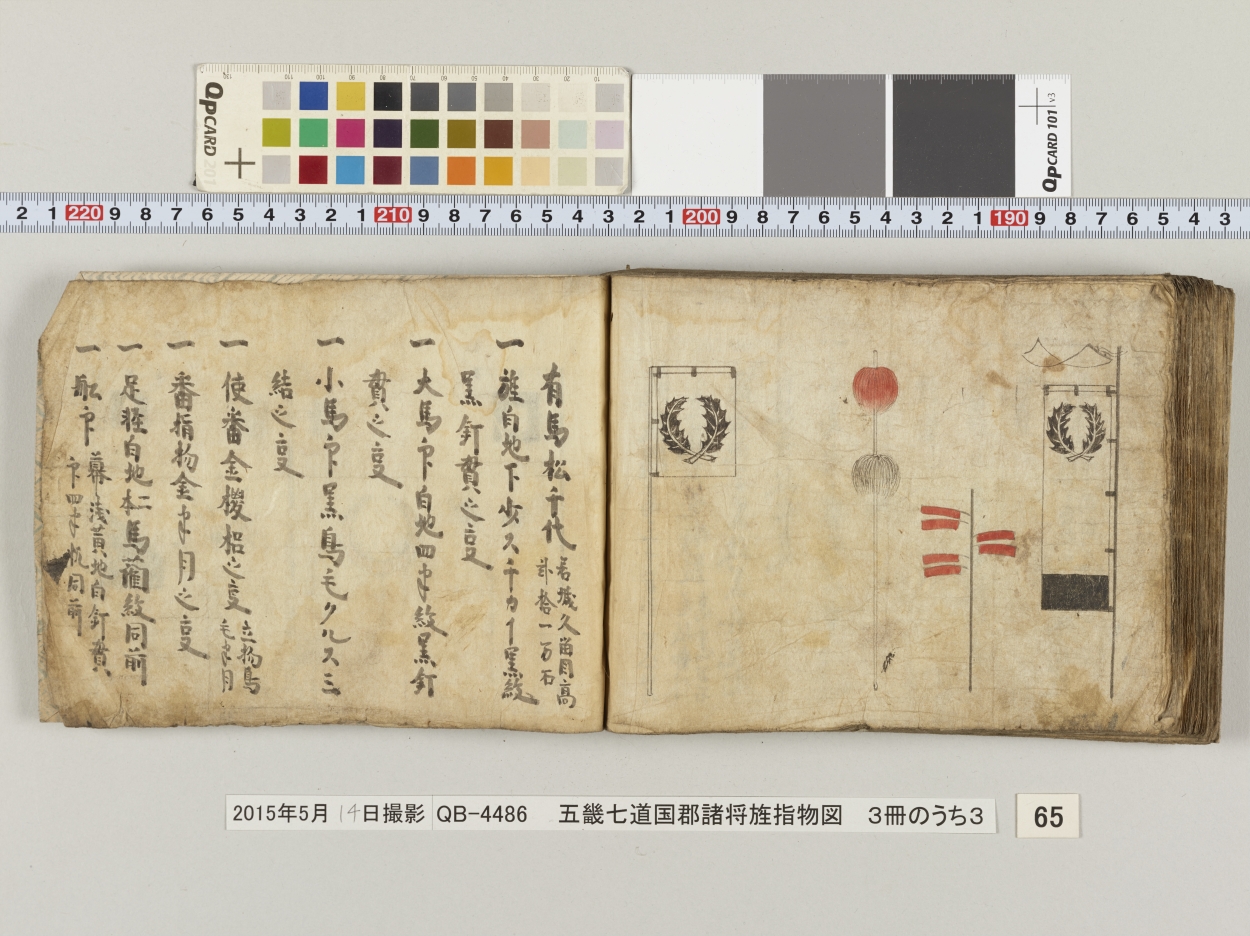 QPCARD 201
QPCARD 101 v3
2 1 220 9 8 7 6 5 4 3 2 1 210 9 8 7 6 5 4 3 2 1 200 9 8 7 6 5 4 3 2 1 190 9 8 7 6 5 4 3
有馬松千代
久留目高
弐拾一万石
一 旌白地下少ス千カイ黒紋
黒釘貫之
一 大馬印白地四半紋黒釘
貫之
一 小馬印黒鳥毛クルス三
結之
一 使番金
立物鳥
毛半月
一 番指物金半月之
一 足軽白地
紋同前
一 船印
幕浅黄地白釘貫
印四半帆同前
2015年5月14日撮影 QB-4486 五畿七道国郡諸将旌指物図 3冊のうち3
65